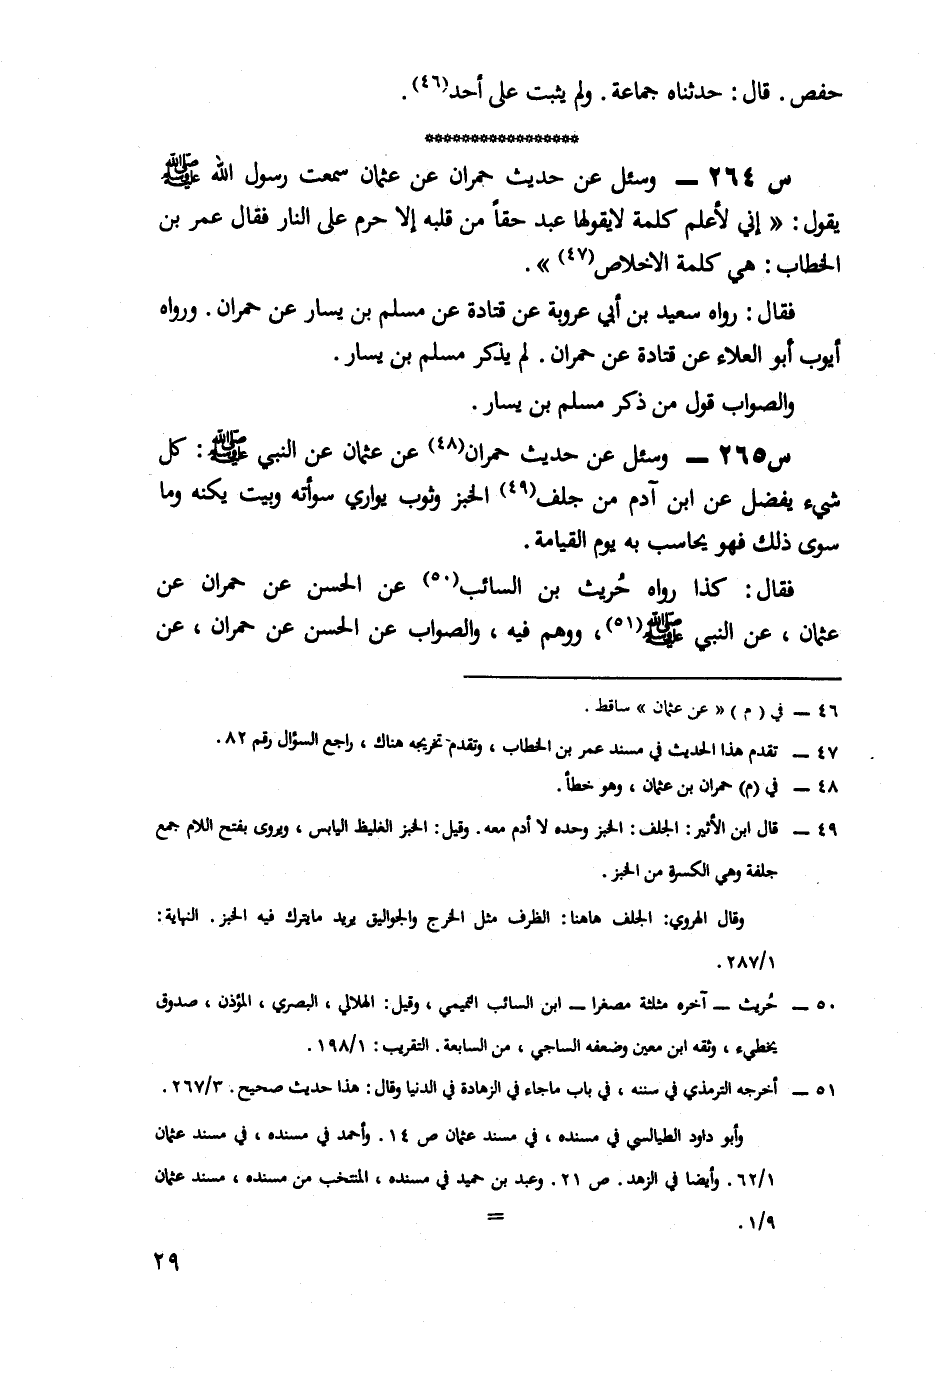 حفص . قال : حدثناه جماعة . ولم يثبت على أحد(٤٦) .
****************
س ٢٦٤ – وسئل عن حديث حمران عن عثمان سمعت رسول الله ﷺ
يقول : « إني لأعلم كلمة لايقولها عبد حقاً من قلبه إلا حرم على النار فقال عمر بن
الخطاب : هي كلمة الاخلاص(٤٧) » .
فقال : رواه سعيد بن أبي عروبة عن قتادة عن مسلم بن يسار عن حمران . ورواه
أيوب أبو العلاء عن قتادة عن حمران . لم يذكر مسلم بن يسار .
والصواب قول من ذكر مسلم بن يسار .
س٢٦٥ – وسئل عن حديث حمران(٤٨) عن عثمان عن النبي ﷺ : كل
شيء يفضل عن ابن آدم من جلف(٤٩) الخبز وثوب يواري سوأته وبيت يكنه وما
سوى ذلك فهو يحاسب به يوم القيامة .
فقال : كذا رواه حُريث بن السائب(٥٠) عن الحسن عن حمران عن
عثمان ، عن النبي ﷺ(٥١) ، ووهم فيه ، والصواب عن الحسن عن حمران ، عن
٤٦ – في ( م ) « عن عثمان » ساقط .
٤٧ – تقدم هذا الحديث في مسند عمر بن الخطاب ، وتقدم تخريجه هناك ، راجع السؤال رقم ٨٢ .
٤٨ – في (م) حمران بن عثمان ، وهو خطأ .
٤٩ – قال ابن الأثير : الجلف : الخبز وحده لا أدم معه . وقيل : الخبز الغليظ اليابس ، ويروى بفتح اللام جمع
جلفة وهي الكسرة من الخبز .
وقال الهروي : الجلف هاهنا : الظرف مثل الخرج والجواليق يريد مايترك فيه الخبز . النهاية :
٢٨٧/١ .
٥٠ – حُريث – آخره مثلثة مصغرا – ابن السائب التميمي ، وقيل : الهلالي ، البصري ، المؤذن ، صدوق
يخطيء ، وثقه ابن معين وضعفه الساجي ، من السابعة . التقريب : ١٩٨/١ .
٥١ – أخرجه الترمذي في سننه ، في باب ماجاء في الزهادة في الدنيا وقال : هذا حديث صحيح . ٢٦٧/٣ .
وأبو داود الطيالسي في مسنده ، في مسند عثمان ص ١٤ . وأحمد في مسنده ، في مسند عثمان
٦٢/١ . وأيضا في الزهد . ص ٢١ . وعبد بن حميد في مسنده ، المنتخب من مسنده ، مسند عثمان
١/٩ .
=
٢٩